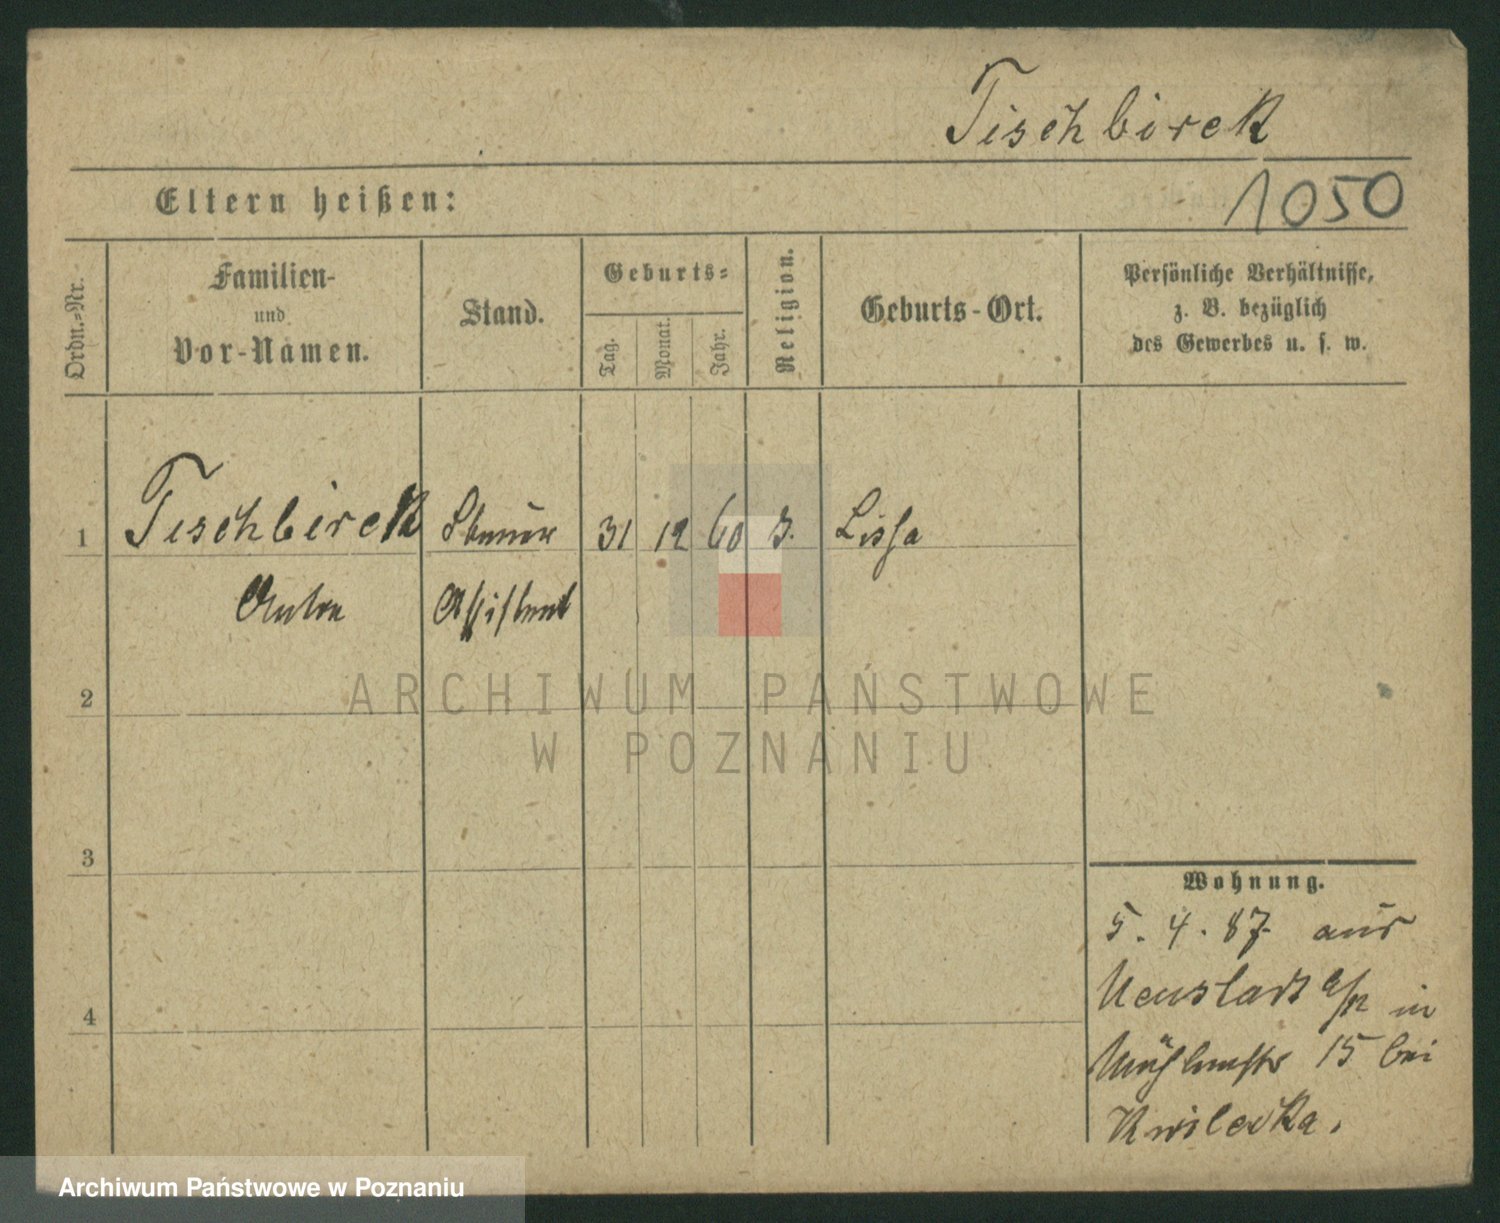 Tischbirek
Eltern heißen:
1050
Ordn.-Nr.
Familien-
und
Vor-Namen.
Stand.
Geburts-
Tag.
Monat.
Jahr.
Religion.
Geburts-Ort.
Persönliche Verhältnisse,
z. B. bezüglich
des Gewerbes u. s. w.
1 Tischbirek Steuer 31 12 60 Lissa
Assistent
2
ARCHIWUM PAŃSTWOWE
W POZNANIU
3
Wohnung.
5. 4. 87. aus
Neustadt in
4
Mühlenstr 15 bei
Kwilecka.
Archiwum Państwowe w Poznaniu